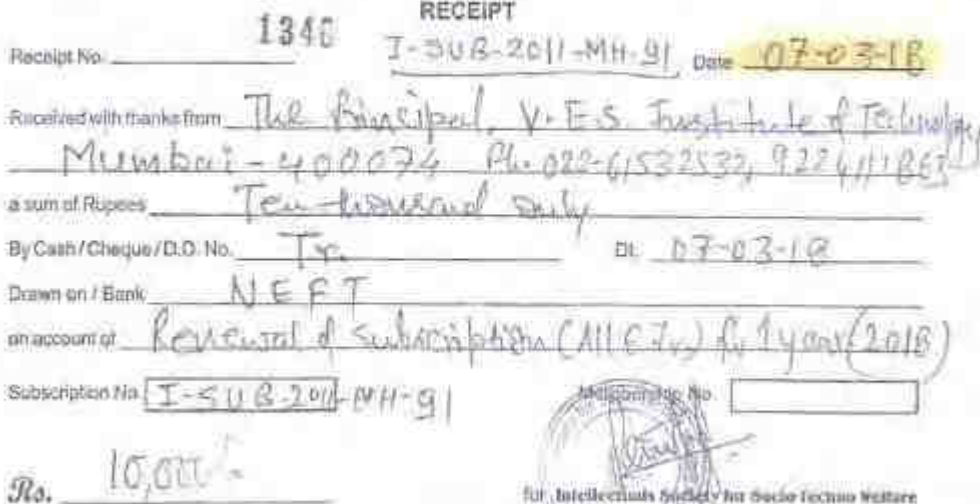 RECEIPT
Receipt No. 1346 I-SUB-2011-MH-91 Date 07-03-18
Received with thanks from The Principal, V.E.S. Institute of Technology,
Mumbai - 400074 Ph. 022-61532532,
a sum of Rupees Ten thousand only
By Cash / Cheque / D.D. No. Tr. Dt. 07-03-18
Drawn on / Bank NEFT
on account of Renewal of Subscription for 1 year (2018)
Subscription No. I-SUB-2011-MH-91 Membership No.
Rs. 10,000/-
for Intellectuals Society for Socio Techno Welfare